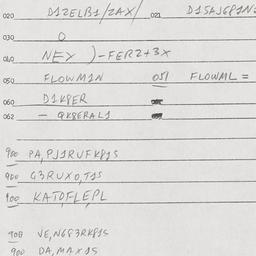 020 D1ZELB1/ZAX/ 021 D15AJ681N
030 0
040 NEX )-FER2+3X
050 FLOWM1N 051 FLOWML =
060 D1K8ER
062 - QK8ERAL1
900 PA,PJ1RUFK81S
900 G3RUX0,T1S
900 KATOFLEPL
908 VE,N6F3RK81S
900 DA,MAX1S